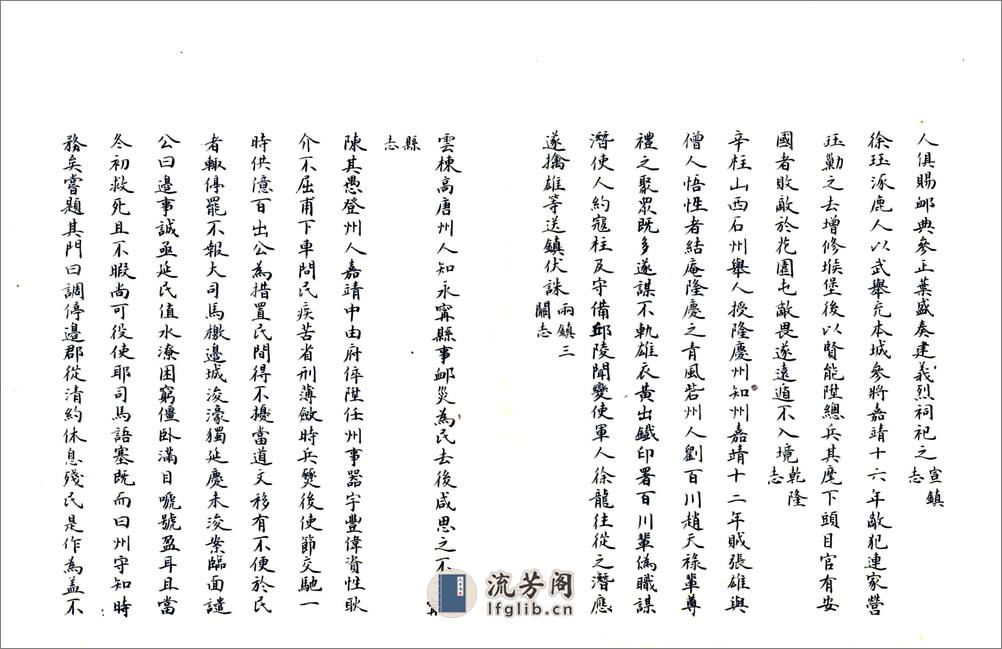 人俱賜䘏典參正葉盛奏建義烈祠祀之宣鎮志
徐珏涿鹿人以武舉充本城參將嘉靖十六年敵犯連家營
珏勦之去增修堠堡後以賢能陞總兵其麾下頭目官有安
國者敗敵於花園屯敵畏遂遠遁不入境乾隆志
辛柱山西石州舉人授隆慶州知州嘉靖十二年賊張雄與
僧人悟性者結庵隆慶之青風砦州人劉百川趙天祿輩尊
禮之聚眾既多遂謀不軌雄衣黃出鐵印署百川輩偽職謀
潛使人約寇柱及守備邱陵聞變使軍人徐龍往從之潛應
遂擒雄等送鎮伏誅兩鎮三關志
雲棟高唐州人知永寧縣事䘏災為民去後咸思之不
縣志
陳其愚登州人嘉靖中由府倅陞任州事器宇豐偉資性耿
介不屈甫下車問民疾苦省刑薄斂時兵燹後使節交馳一
時供億百出公為措置民間得不擾當道文移有不便於民
者輒停罷不報大司馬檄邊城浚濠獨延慶未浚案臨面譴
公曰邊事誠亟延民值水潦困窮僵臥滿目嗁號盈耳且當
冬初救死且不暇尚可役使耶司馬語塞既而曰州守知時
務矣嘗題其門曰調停邊郡從清約休息殘民是作為蓋不
流芳阁
lfglib.cn